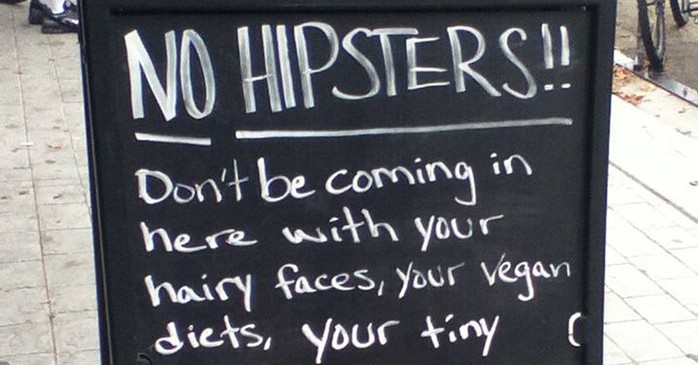 NO HIPSTERS!!
Don't be coming in
here with your
hairy faces, your vegan
diets, your tiny